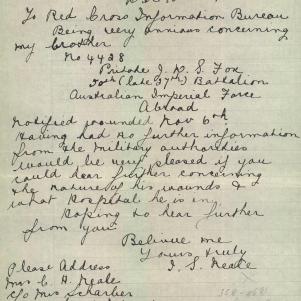 To Red Cross Information Bureau
Being very anxious concerning
my brother
No 4428
Private J. R. S. Fox
50th (late 37th) Battalion
Australian Imperial Force
Abroad
Notified wounded Nov 6th
Having had no further information
from the Military authorities
would be very pleased if you
could hear further concerning
the nature of his wounds &
what hospital he is in
Hoping to hear further
from you
Believe me
Yours truly
J. S. Neale
Please Address
Mrs C. H. Neale
C/o Mrs